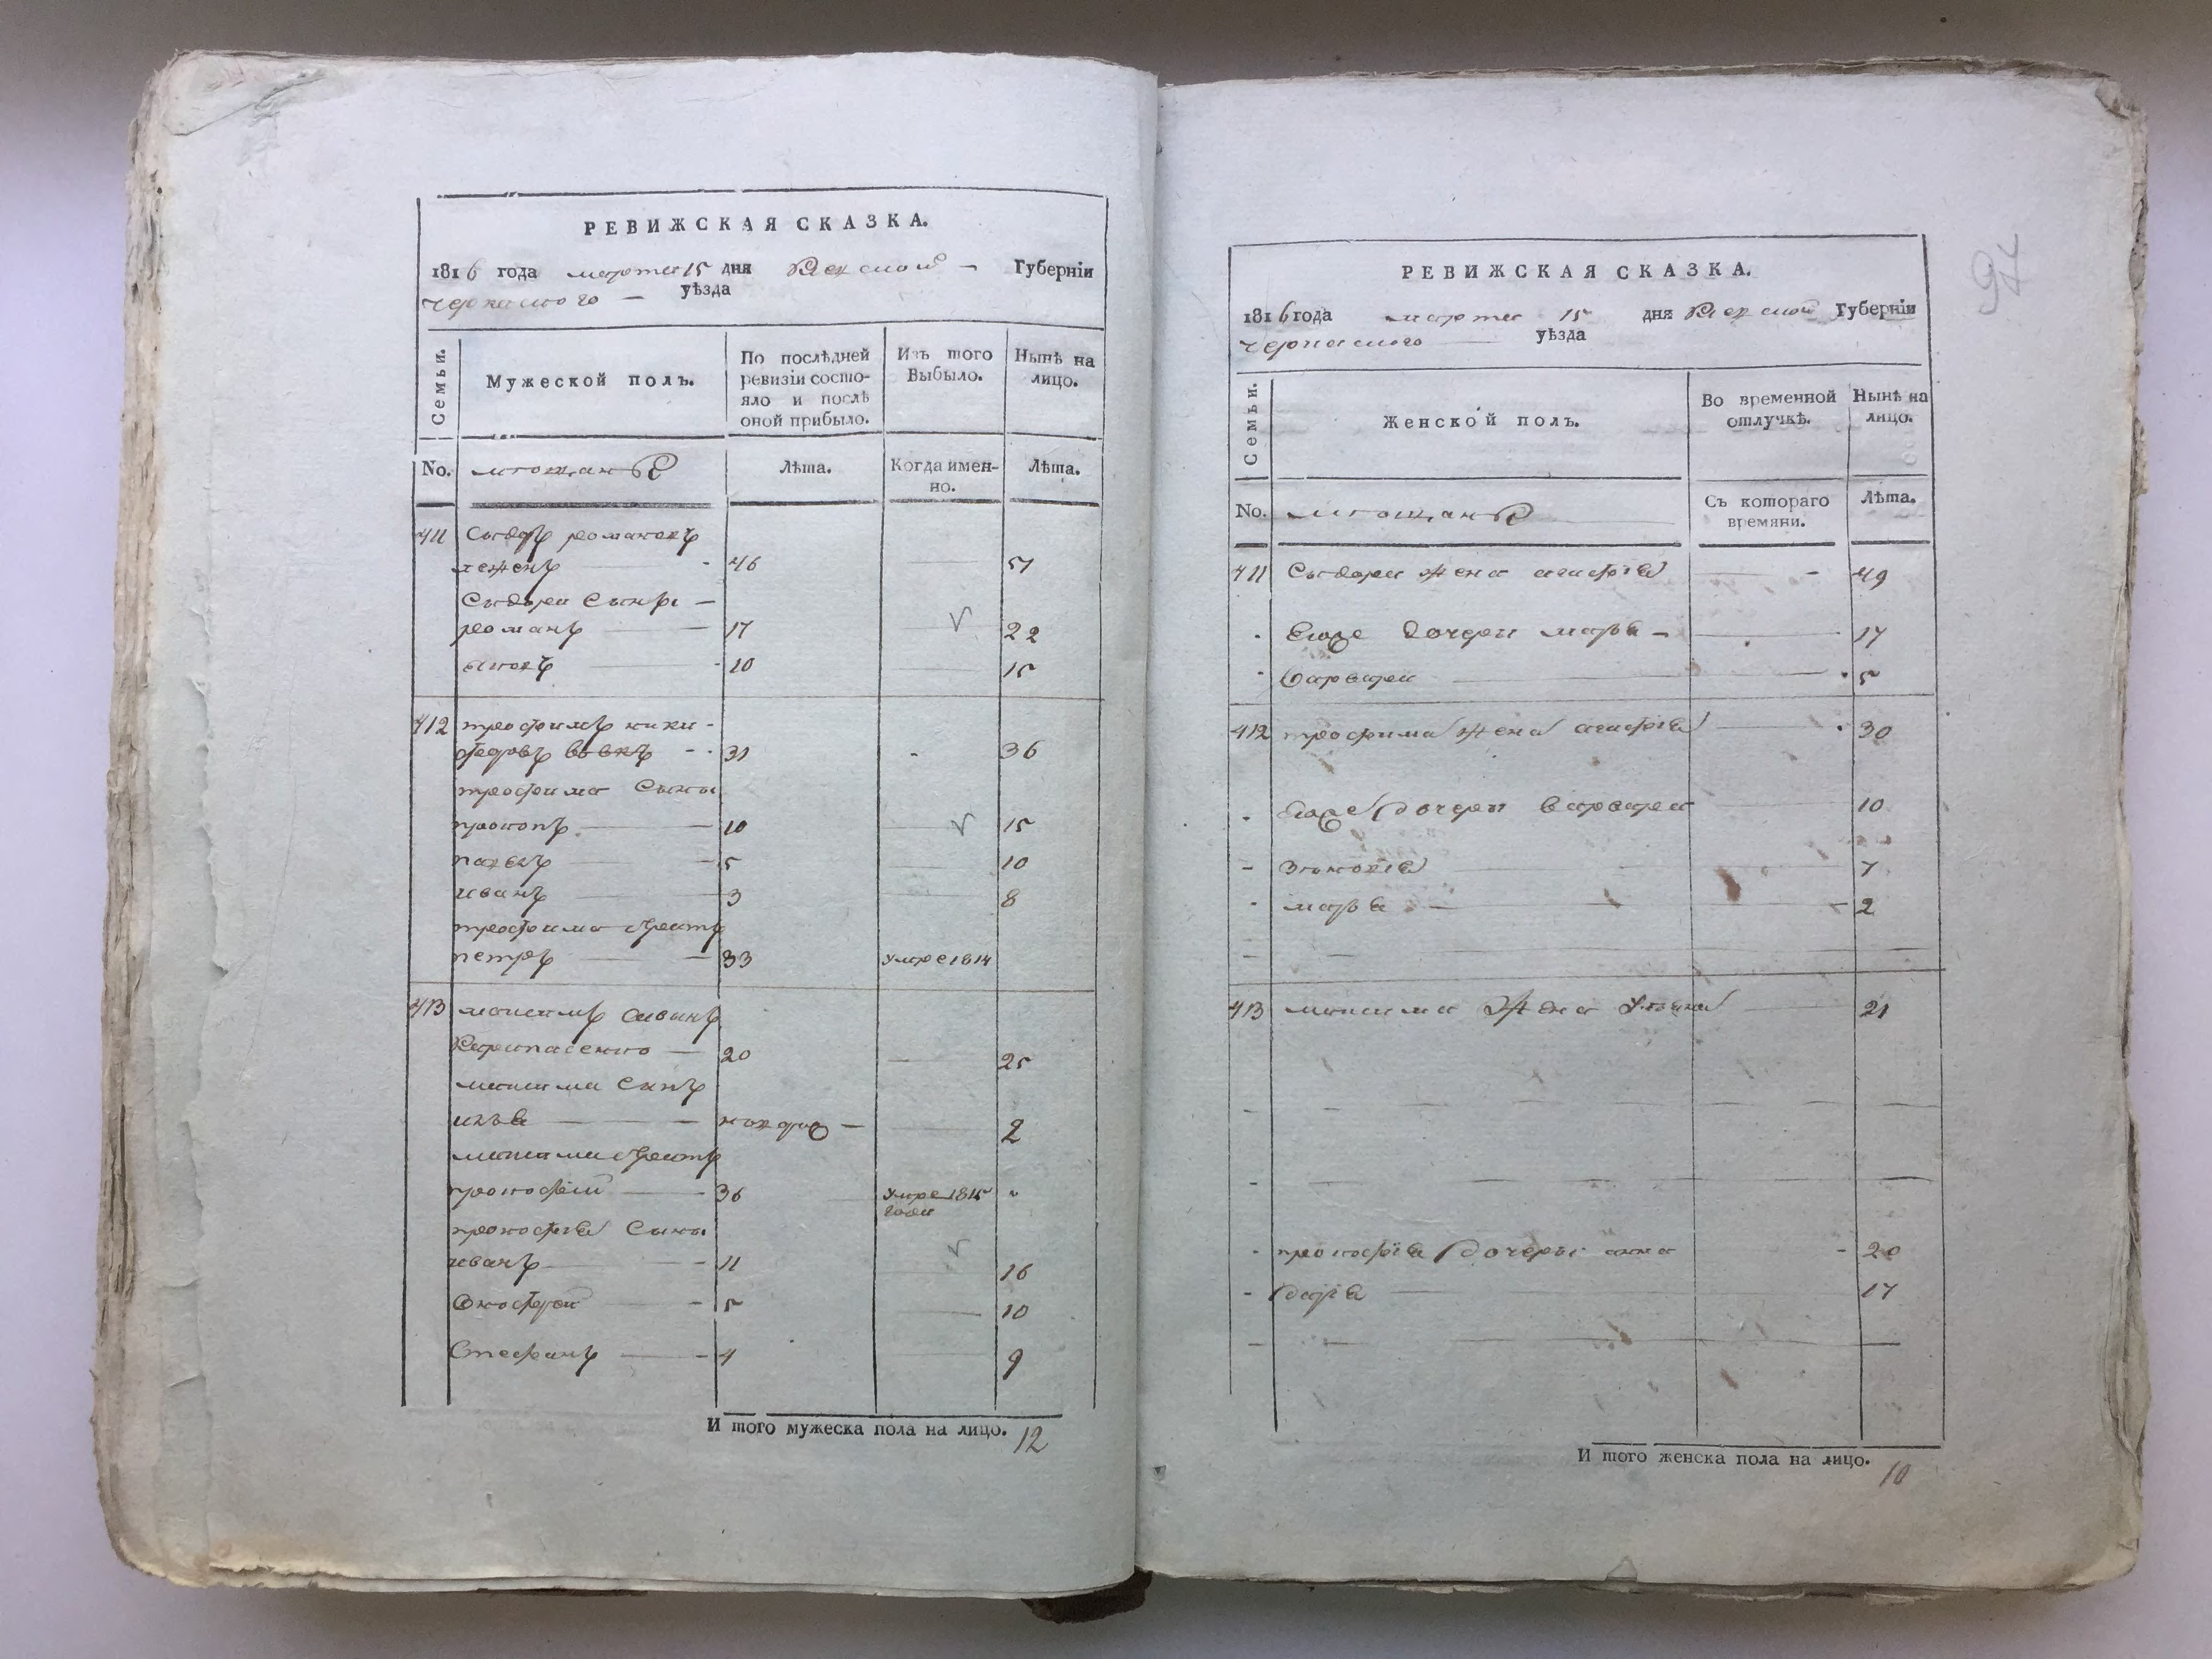 РЕВИЖСКАЯ СКАЗКА.
1816 года марта 15 дня Киевской Губерніи
черкаского уѣзда
Семьи. Мужеской полъ. По послѣдней ревизіи состояло и послѣ оной прибыло. Изъ того Выбыло. Нынѣ на лицо.
No. Лѣта. Когда именно. Лѣта.
411 Сыдоръ романовъ
46 51
Сыдора Сынъ
романъ 17 22
10 15
412 трофимъ ники-
форовъ вовкъ 31 36
трофима Сыны
прокопъ 10 15
павелъ 5 10
иванъ 3 8
трофима братъ
петръ 33 умре 1814
413 максимъ
20 25
максима Сынъ
илья новорож 2
максима братъ
прокофій 36 умре 1815
года
прокофія Сыны
иванъ 11 16
Онофрей 5 10
Стефанъ 4 9
И того мужеска пола на лицо. 12
94
РЕВИЖСКАЯ СКАЗКА.
1816 года марта 15 дня Киевской Губерніи
черкаского уѣзда
Семьи. Женской полъ. Во временной отлучкѣ. Нынѣ на лицо.
No. Съ котораго времяни. Лѣта.
411 Сыдора жена агафія 49
Егоже дочери марья 17
варвара 5
412 трофима жена агафія 30
Егоже дочери варвара 10
зѣновія 7
марья 2
413 максима жена Уляна 21
прокофія дочери анна 20
дарья 17
И того женска пола на лицо. 10